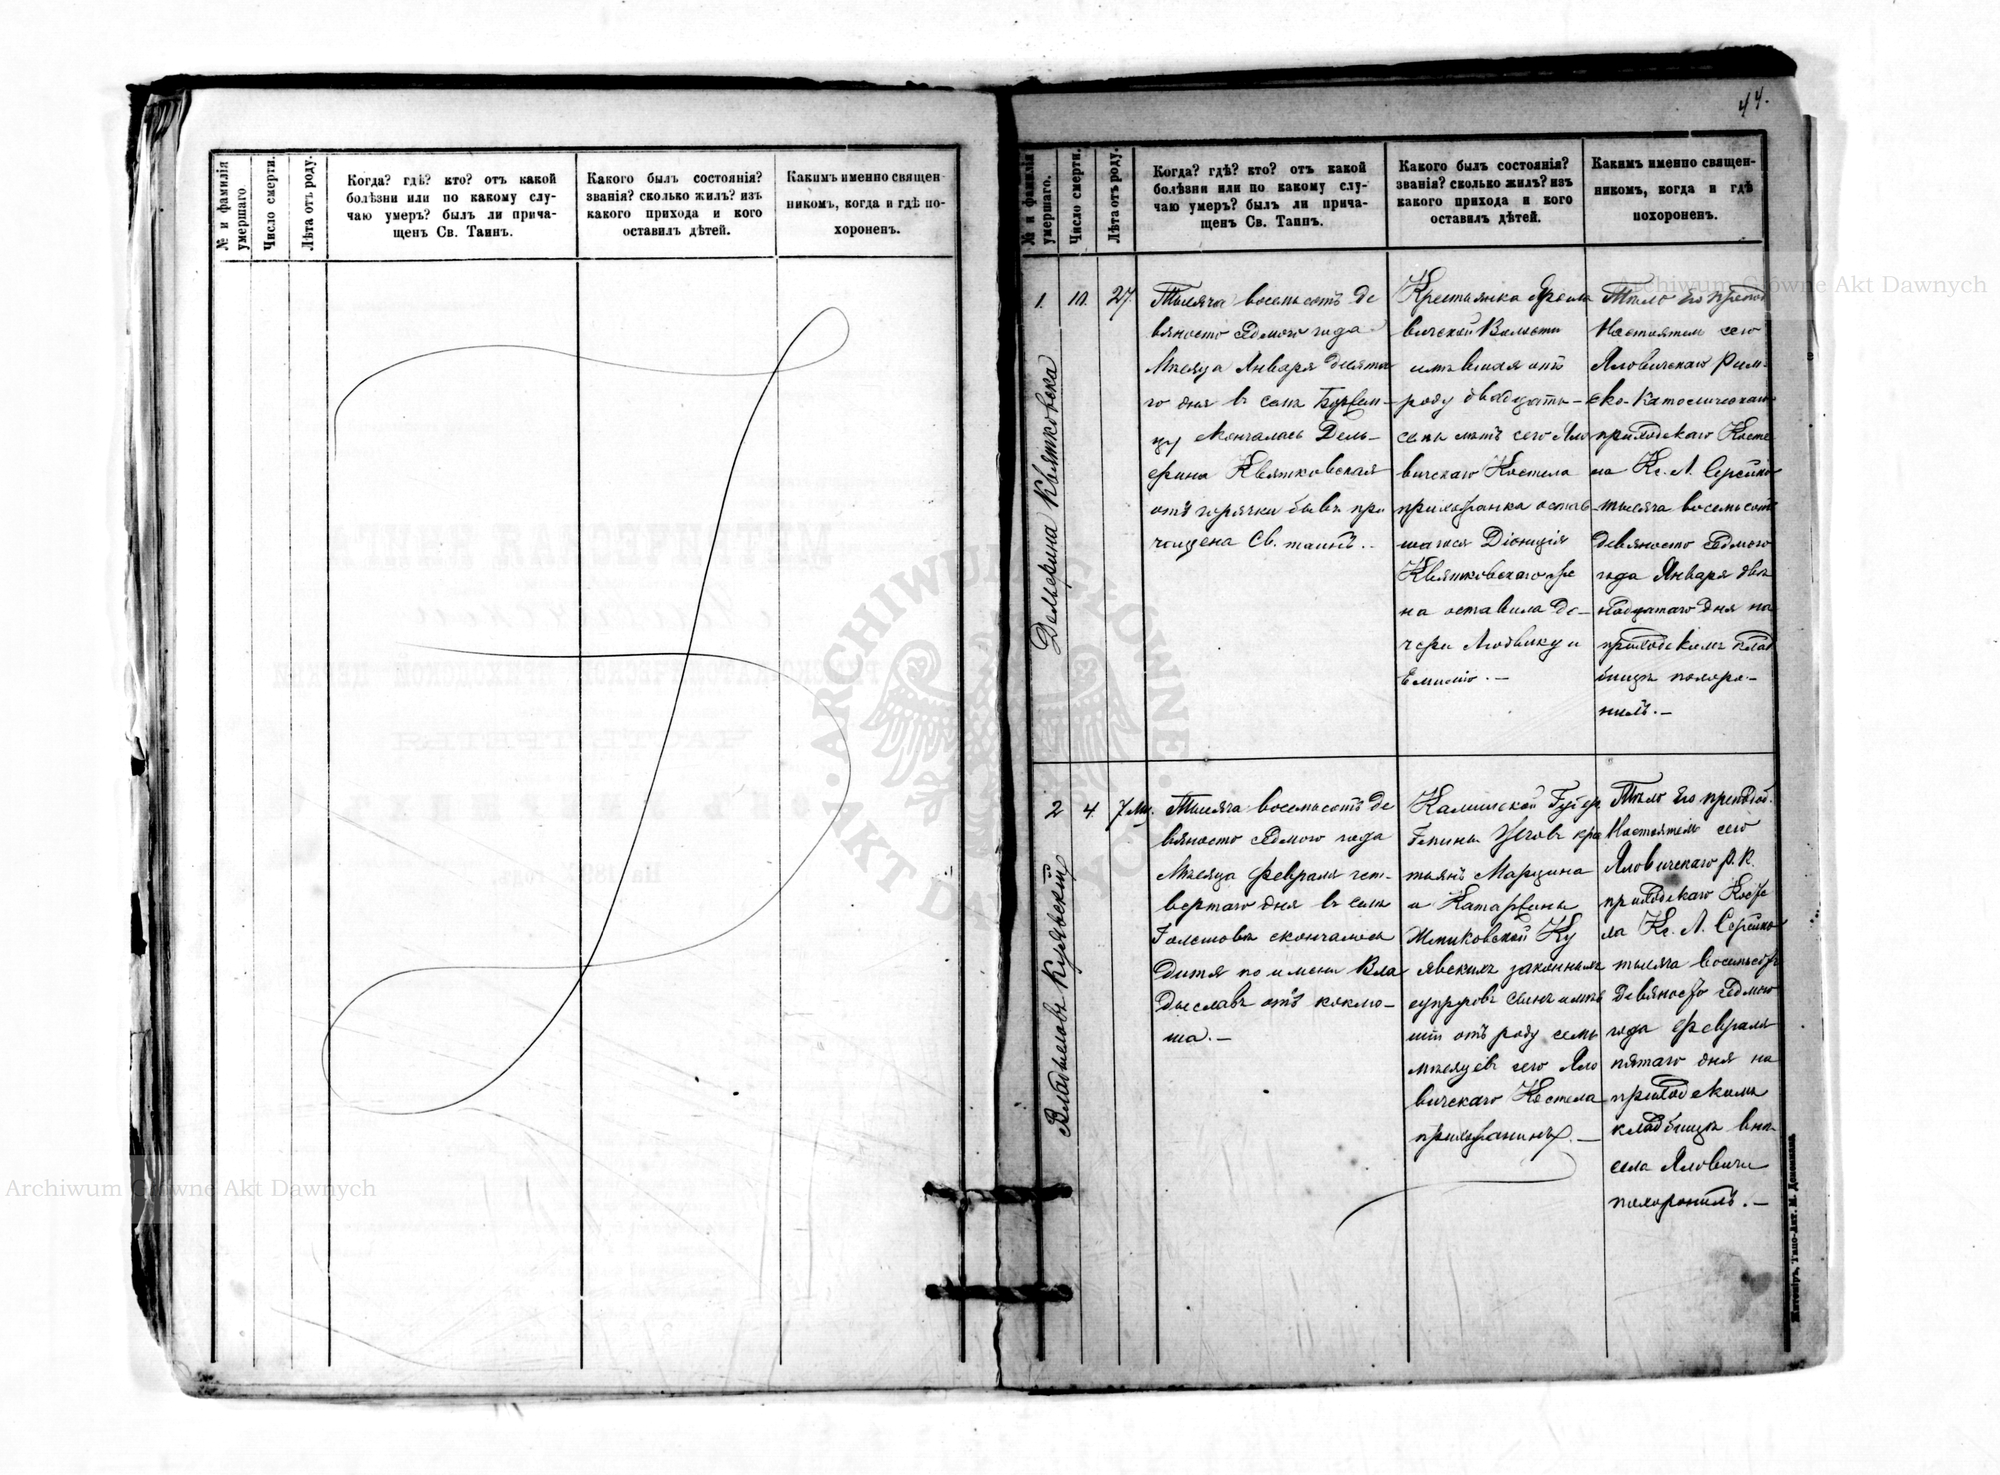 44.
№ и фамилія умершаго
Число смерти.
Лѣта отъ роду.
Когда? гдѣ? кто? отъ какой
болѣзни или по какому слу-
чаю умеръ? былъ ли прича-
щенъ Св. Таинъ.
Какого былъ состоянія?
званія? сколько жилъ? изъ
какого прихода и кого
оставилъ дѣтей.
Какимъ именно священ-
никомъ, когда и гдѣ по-
хороненъ.
№ и фамилія умершаго.
Число смерти.
Лѣта отъ роду.
Когда? гдѣ? кто? отъ какой
болѣзни или по какому слу-
чаю умеръ? былъ ли прича-
щенъ Св. Таинъ.
Какого былъ состоянія?
званія? сколько жилъ? изъ
какого прихода и кого
оставилъ дѣтей.
Какимъ именно священ-
никомъ, когда и гдѣ
похороненъ.
1.
Дельфина Квятковска
10.
27.
Тысяча восемьсотъ де
вяносто седмого года
Мѣсяца Января десята
го дня въ селѣ
скончалась Дель-
фина Квятковская
отъ горячки бывъ при
чащена Св. таинъ..
Крестьянка
Волости
имѣвшая отъ
роду двадцать-
семь лѣтъ сего Яло
вичскаго Костела
прихожанка остав
шагося Діонизія
Квятковскаго же
на оставила до-
чери Людвику и
Емилію.-
Тѣло Его препод
Настоятель сего
Яловичскаго Рим-
ско-Католическаго
приходскаго Косте
ла Кс. Л.
тысяча восемьсотъ
девяносто седмого
года Января две
надцатаго дня на
приходскомъ клад
бищѣ похоро-
нилъ.-
2
Владыславъ Куявскій
4.
7 мц.
Тысяча восемьсотъ де
вяносто седмого года
Мѣсяца февраля чет-
вертаго дня въ селѣ
скончалось
дитя по имени Вла
дыславъ отъ коклю-
ша.-
Калишской Губер
кре
тьянъ Марцина
и Катаржины
Ку
явскихъ законныхъ
супруговъ сынъ имѣв
шій отъ роду семь
мѣсяцевъ сего Яло
вичскаго Костела
прихожанинъ.-
Тѣло Его преподоб.
Настоятель сего
Яловичскаго Р.К.
приходскаго Косте
ла Кс. Л.
тысяча восемьсотъ
девяносто седмого
года февраля
пятаго дня на
приходскомъ
кладбищѣ внѣ
села Яловичи
похоронилъ.-
Житоміръ, Типо-Лит. М. Дененмана.
Archiwum Główne Akt Dawnych
Archiwum Główne Akt Dawnych
ARCHIWUM GŁÓWNE AKT DAWNYCH